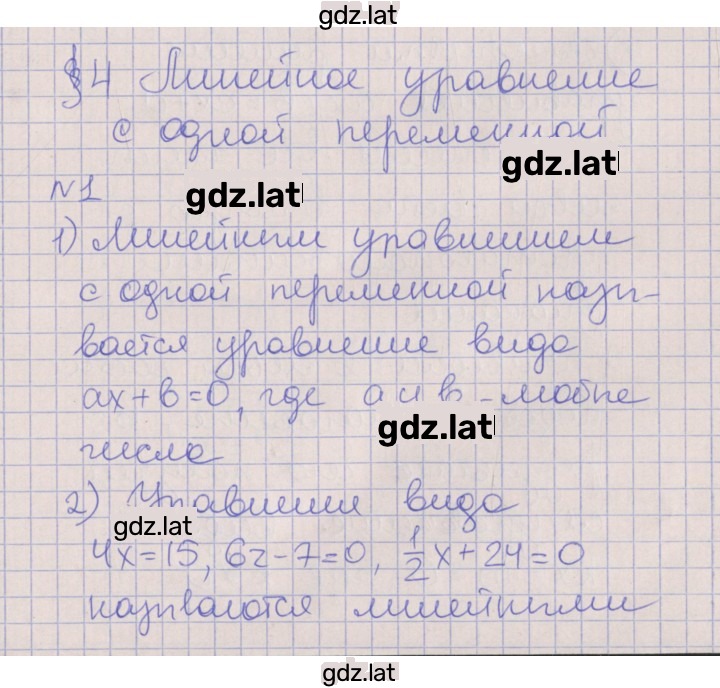 gdz.lat
§4 Линейное уравнение
с одной переменной
gdz.lat
№1
gdz.lat
1) Линейным уравнением
с одной переменной назы-
вается уравнение вида
ax + b = 0, где a и b - любые
gdz.lat
числа
2) Уравнения вида
gdz.lat
4x = 15, 6z - 7 = 0, 1/2 x + 24 = 0
называются линейными
gdz.lat